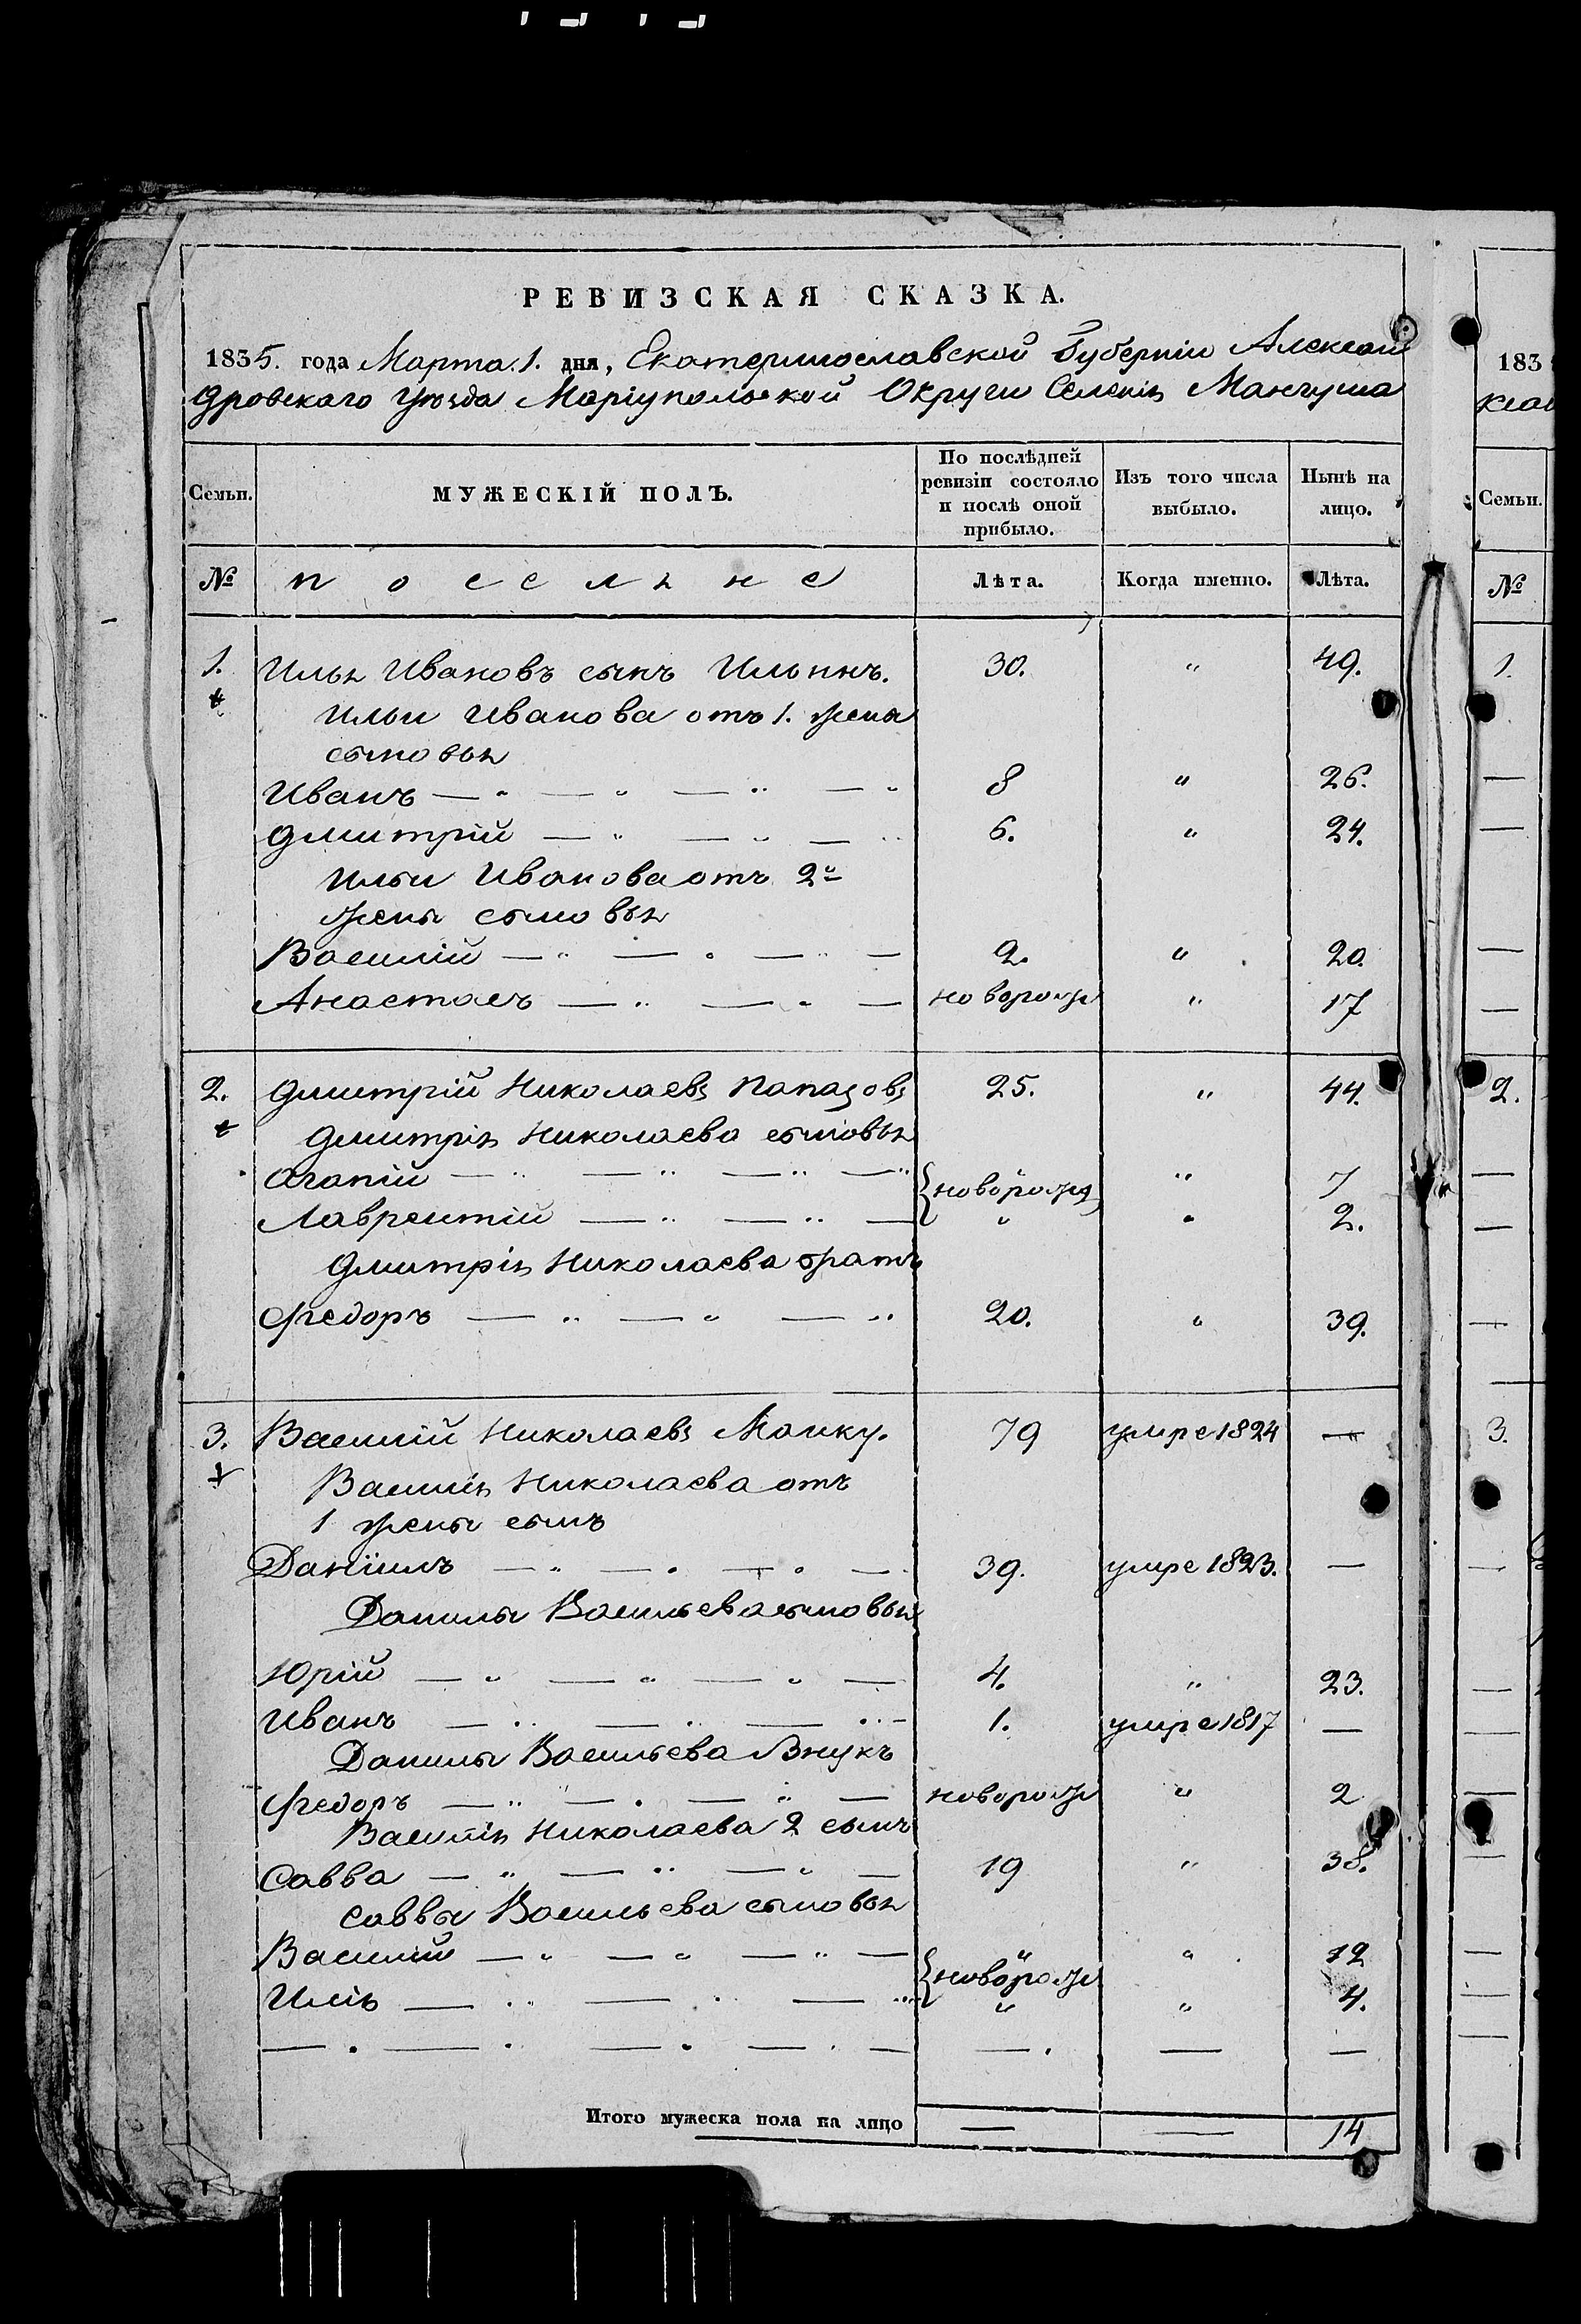 РЕВИЗСКАЯ СКАЗКА.
1835. года Марта 1. дня, Екатеринославской Губерніи Алексан
дровского Уѣзда Маріупольской Округи Селенія Мангуша
Семьи.
МУЖЕСКІЙ ПОЛЪ.
По послѣдней ревизіи состояло и послѣ оной прибыло.
Изъ того числа выбыло.
Нынѣ на лицо.
№
поселяне
Лѣта.
Когда именно.
Лѣта.
1. Илья Ивановъ сынъ Ильинъ. 30. " 49.
Ильи Иванова отъ 1. жены
сыновья
Иванъ — " — " — " — " 8 " 26.
Дмитрій — " — " — " 6. " 24.
Ильи Иванова отъ 2й
жены сыновья
Василій — " — " — " — 2. " 20.
Анастасъ — " — " — новорож " 17
2. Дмитрій Николаевъ Папазовъ 25. " 44.
Дмитрія Николаева сыновья
Агапій — " — " — " — " новорожд " 7
Лаврентій — " — " — " " 2.
Дмитрія Николаева братъ
Федоръ — " — " — " 20. " 39.
3. Василій Николаевъ 79 умре 1824 —
Василія Николаева отъ
1 жены сынъ
Даніилъ — " — " — " — 39. умре 1823. —
Данилы Васильева сыновья
Юрій — " — " — " — 4. " 23.
Иванъ — " — " — " — 1. умре 1817 —
Данилы Васильева внукъ
Федоръ — " — " — " — новорож " 2
Василія Николаева 2 сынъ
Савва — " — " — " — 19 " 38.
Саввы Васильева сыновья
Василій — " — " — " — новорож " 12
Илія — " — " — " " " 4.
— " — " — " — " — — " — —
Итого мужеска пола на лицо — — 14
183
ксан
Семьи.
№
1.
2.
3.